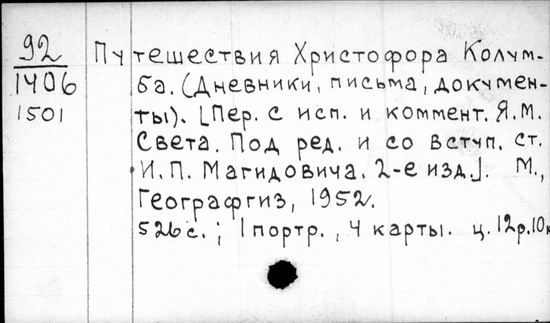 92
1406
1501
Путешествия Христофора Колум-
ба. (Дневники, письма, докумен-
ты). [Пер. с исп. и коммент. Я.М.
Света. Под ред. и со вступ. ст.
И.П. Магидовича. 2-е изд.]. М.,
Географгиз, 1952.
526 с.; 1 портр., 4 карты. ц. 12р.10к